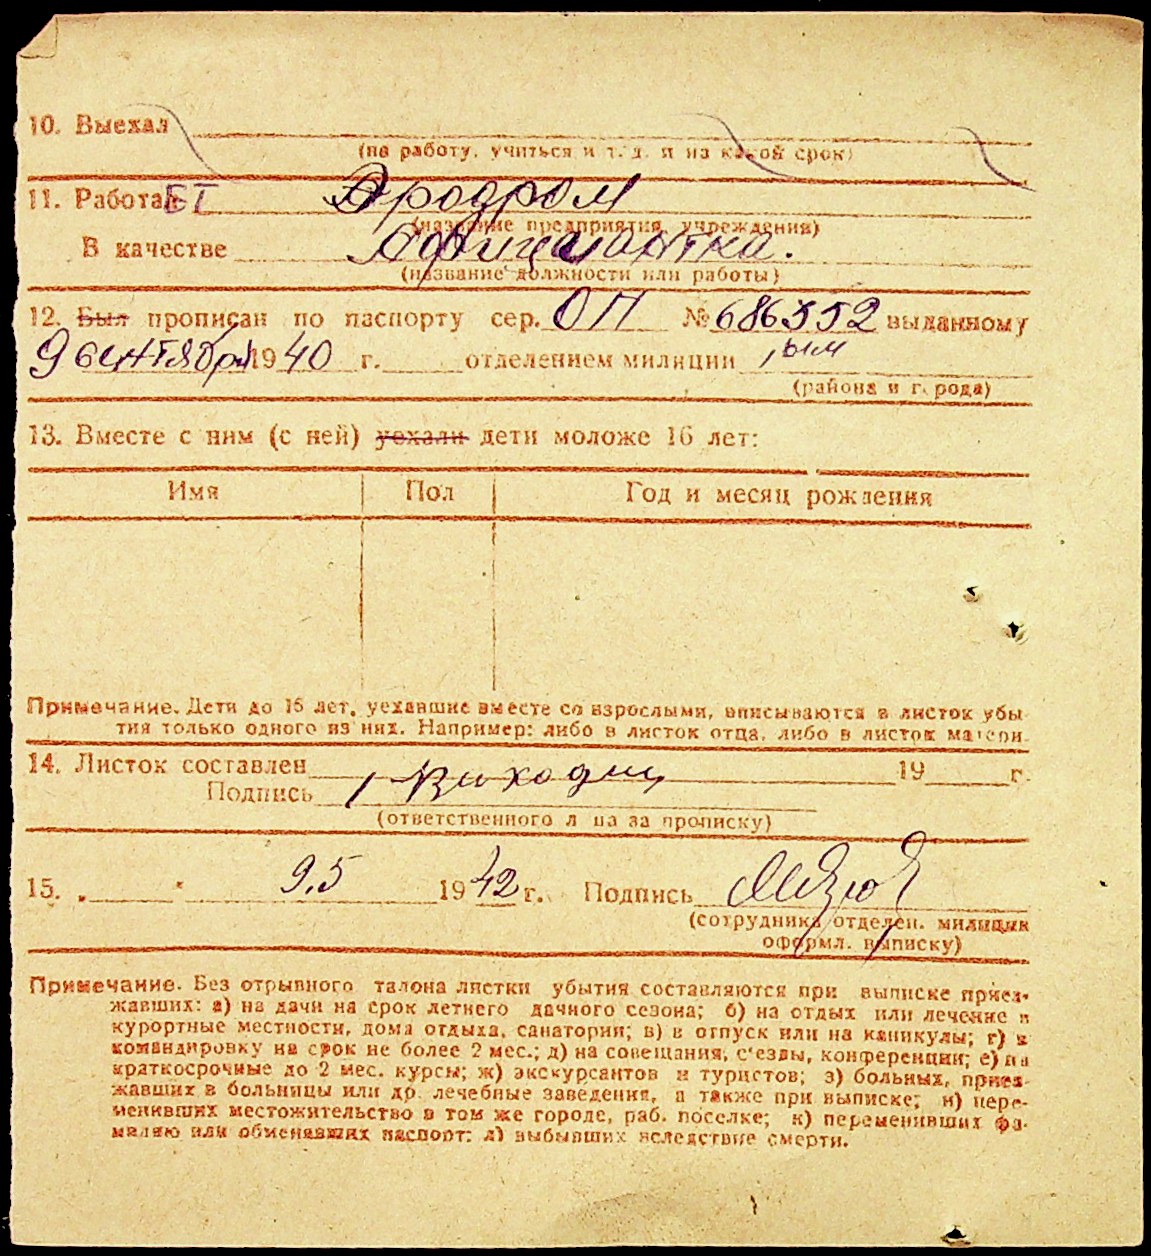 10. Выехал
(на работу, учиться и т. д. и на какой срок)
11. Работает Эродром
(название предприятия, учреждения)
В качестве Афицыантка.
(название должности или работы)
12. Был прописан по паспорту сер. ОП № 686552 выданному
9 сентября 1940 г. отделением милиции
(района и города)
13. Вместе с ним (с ней) уехали дети моложе 16 лет:
Имя Пол Год и месяц рождения
Примечание. Дети до 16 лет, уехавшие вместе со взрослыми, вписываются в листок убы-
тия только одного из них. Например: либо в листок отца, либо в листок матери.
14. Листок составлен 19 г.
Подпись
(ответственного лица за прописку)
15. 9.5 1942 г. Подпись
(сотрудника отделен. милиции
оформл. выписку)
Примечание. Без отрывного талона листки убытия составляются при выписке приез-
жавших: а) на дачи на срок летнего дачного сезона; б) на отдых или лечение в
курортные местности, дома отдыха, санатории; в) в отпуск или на каникулы; г) в
командировку на срок не более 2 мес.; д) на совещания, с'езды, конференции; е) на
краткосрочные до 2 мес. курсы; ж) экскурсантов и туристов; з) больных, приез-
жавших в больницы или др. лечебные заведения, а также при выписке; и) пере-
менивших местожительство в том же городе, раб. поселке; к) переменивших фа-
милию или обменявших паспорт; л) выбывших вследствие смерти.